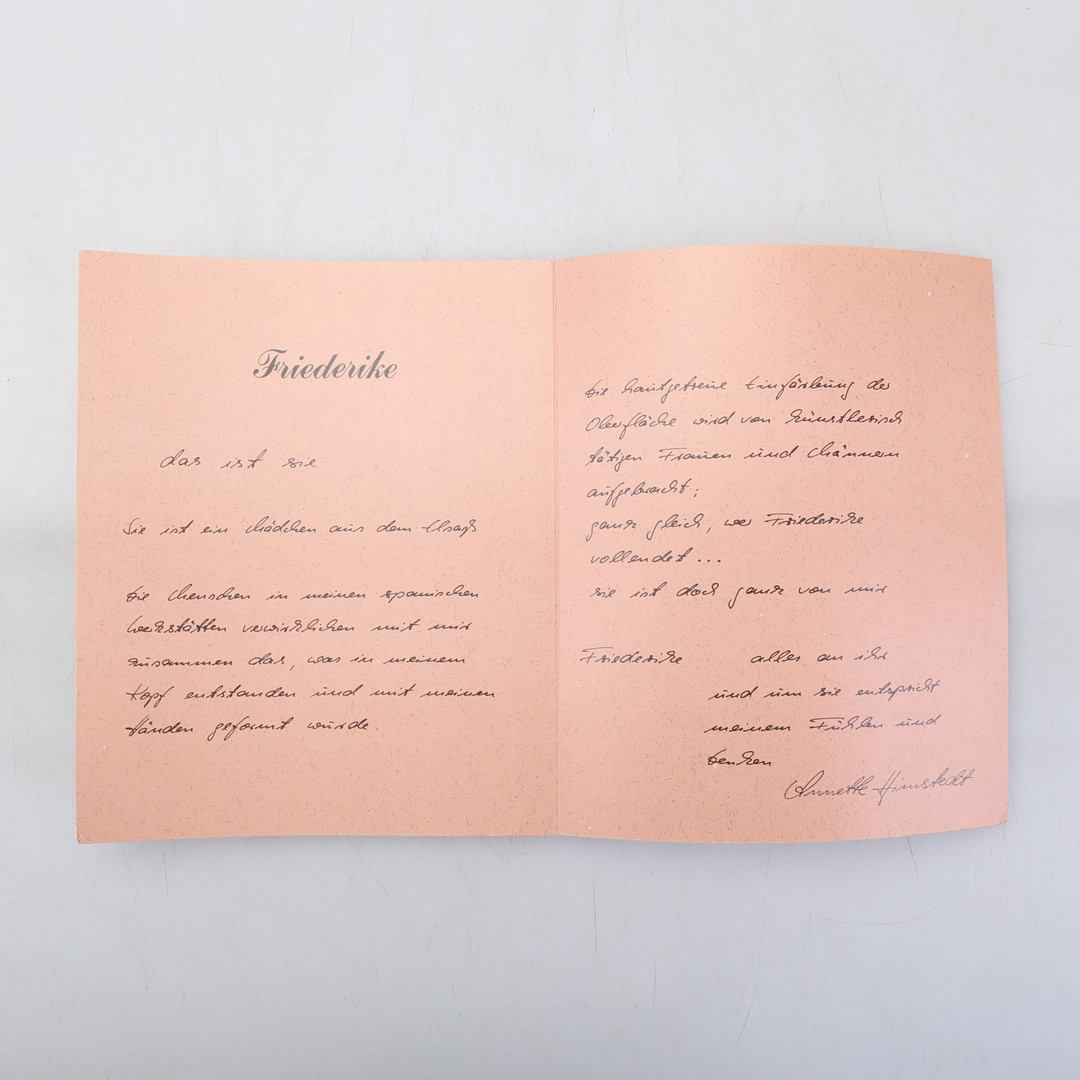 Friederike
das ist sie
Sie ist ein Mädchen aus dem Elsaß
Die Menschen in meinen spanischen
Werkstätten verwirklichen mit mir
zusammen das, was in meinem
Kopf entstanden und mit meinen
Händen geformt wurde.
Die hautgetreue Einfärbung der
Oberfläche wird von künstlerisch
tätigen Frauen und Männern
aufgebracht;
ganz gleich, wer Friederike
vollendet...
sie ist doch ganz von mir
Friederike alles an ihr
und um sie entspricht
meinem Fühlen und
Denken
Annette Himstedt